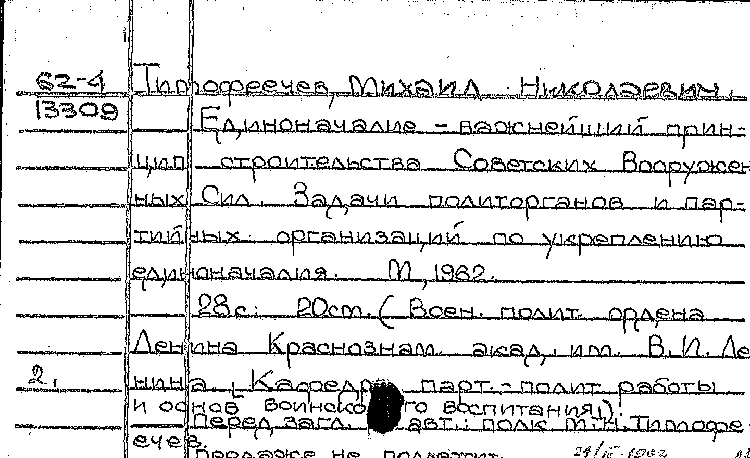 62-4 Тимофеечев, Михаил Николаевич.
13309
Единоначалие - важнейший прин-
цип строительства Советских Вооружен
ных Сил. Задачи политорганов и пар-
тийных организаций по укреплению
единоначалия. М, 1962.
28с. 20см. (Воен. полит. ордена
Ленина Краснознам. акад. им. В.И. Ле
2. нина. Кафедра парт.-полит работы
и основ воинского воспитания).
Перед загл. авт.: полк М.Н. Тимофе-
ечев.
Продаже не подлежит.